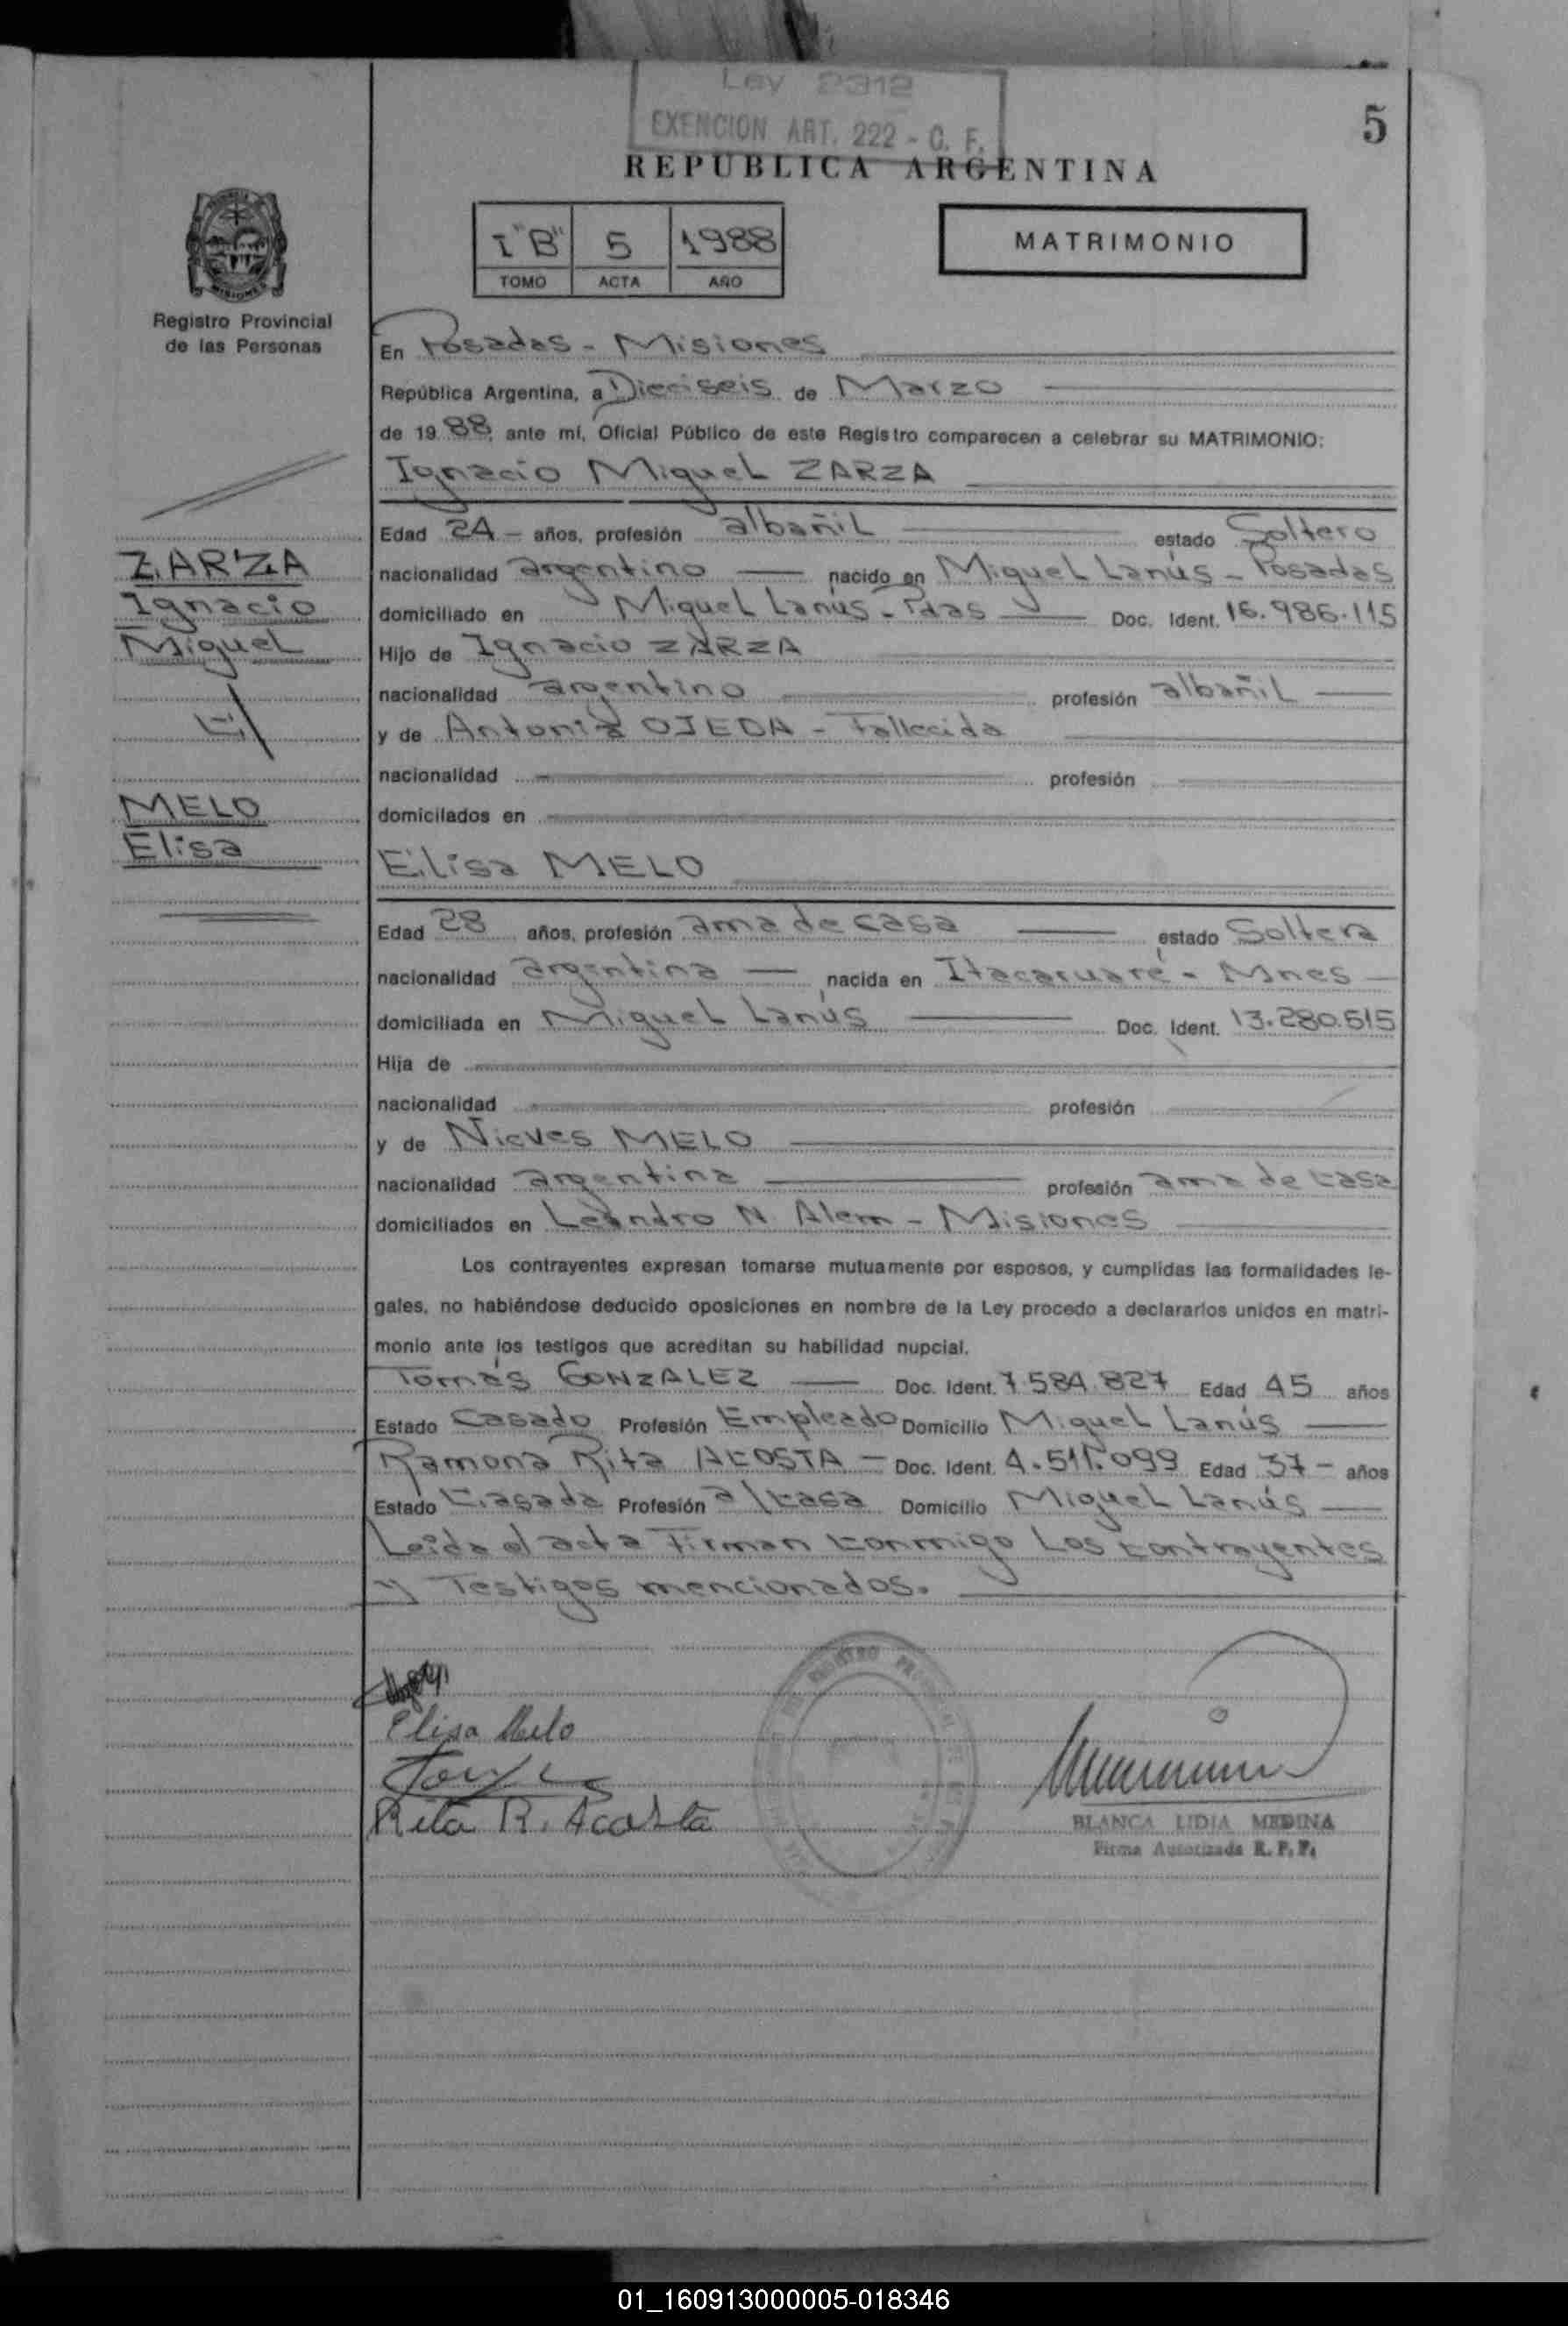 Ley 2312
EXENCION ART. 222 - C. F.
5
REPUBLICA ARGENTINA
I "B" 5 1988
TOMO ACTA AÑO
MATRIMONIO
MISIONES
Registro Provincial
de las Personas
En Posadas - Misiones
República Argentina, a Dieciseis de Marzo
de 1988, ante mí, Oficial Público de este Registro comparecen a celebrar su MATRIMONIO:
Ignacio Miguel ZARZA
Edad 24 - años, profesión albañil estado Soltero
ZARZA
nacionalidad argentino nacido en Miguel Lanús - Posadas
Ignacio
domiciliado en Miguel Lanús - Pdas Doc. Ident. 16.986.115
Miguel
Hijo de Ignacio ZARZA
nacionalidad argentino profesión albañil
y de Antonia OJEDA - Fallecida
nacionalidad profesión
MELO
domiciliados en
Elisa
Elisa MELO
Edad 28 años, profesión ama de casa estado Soltera
nacionalidad argentina nacida en Itacaruaré - Mnes
domiciliada en Miguel Lanús Doc. Ident. 13.280.515
Hija de
nacionalidad profesión
y de Nieves MELO
nacionalidad argentina profesión ama de casa
domiciliados en Leandro N. Alem - Misiones
Los contrayentes expresan tomarse mutuamente por esposos, y cumplidas las formalidades le-
gales, no habiéndose deducido oposiciones en nombre de la Ley procedo a declararlos unidos en matri-
monio ante los testigos que acreditan su habilidad nupcial.
Tomás GONZALEZ Doc. Ident. 7.584.827 Edad 45 años
Estado Casado Profesión Empleado Domicilio Miguel Lanús
Ramona Rita ACOSTA - Doc. Ident. 4.511.099 Edad 37 - años
Estado Casada Profesión a/casa Domicilio Miguel Lanús
Leída el acta Firman conmigo Los contrayentes
y Testigos mencionados.
Elisa Melo
Rita R. Acosta
BLANCA LIDIA MEDINA
Firma Autorizada R. P. P.
01_160913000005-018346